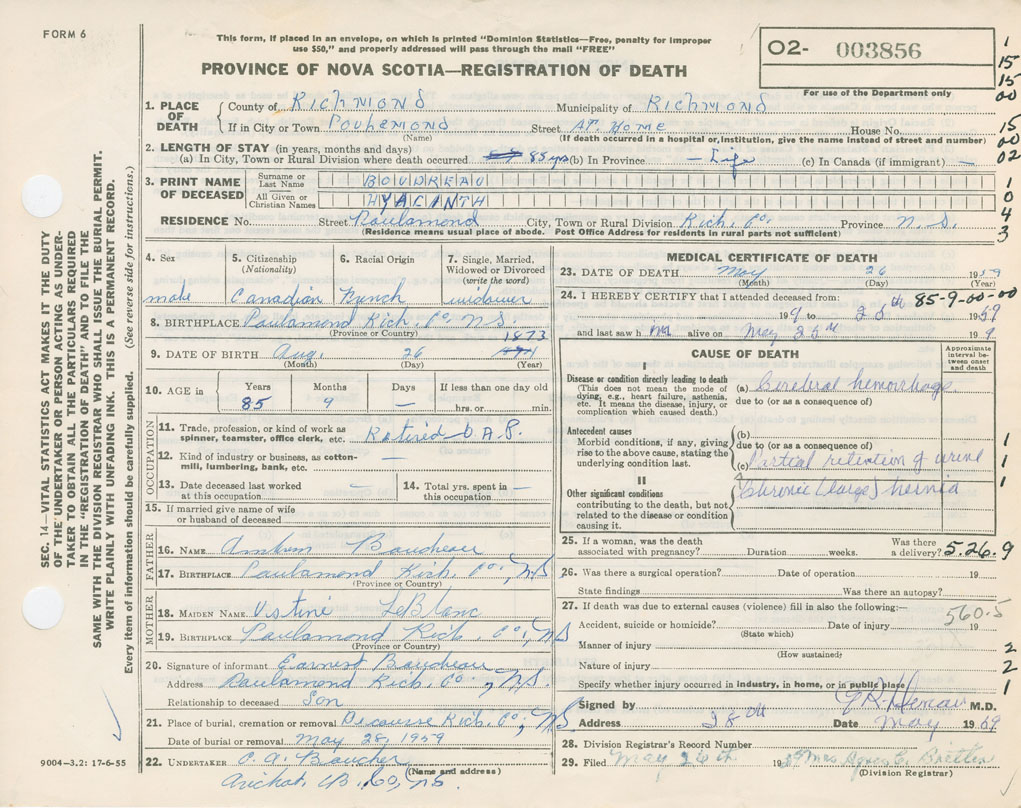 FORM 6
This form, if placed in an envelope, on which is printed "Dominion Statistics—Free, penalty for improper
use $50," and properly addressed will pass through the mail "FREE"
PROVINCE OF NOVA SCOTIA—REGISTRATION OF DEATH
02- 003856
For use of the Department only
1
15
15
00
15
00
02
1
0
4
3
SEC. 14—VITAL STATISTICS ACT MAKES IT THE DUTY
OF THE UNDERTAKER OR PERSON ACTING AS UNDER-
TAKER TO OBTAIN ALL THE PARTICULARS REQUIRED
IN THE "REGISTRATION OF DEATH" AND TO FILE THE
SAME WITH THE DIVISION REGISTRAR WHO SHALL ISSUE THE BURIAL PERMIT.
WRITE PLAINLY WITH UNFADING INK. THIS IS A PERMANENT RECORD.
Every item of information should be carefully supplied. (See reverse side for instructions.)
1. PLACE OF DEATH
County of Richmond Municipality of Richmond
If in City or Town Poulamond Street AT. Home House No.
(Name) (If death occurred in a hospital or institution, give the name instead of street and number)
2. LENGTH OF STAY (in years, months and days)
(a) In City, Town or Rural Division where death occurred 85 yrs (b) In Province — Life (c) In Canada (if immigrant) —
3. PRINT NAME OF DECEASED
Surname or Last Name BOUDREAU
All Given or Christian Names HYACINTH
RESIDENCE No. Street Poulamond City, Town or Rural Division Rich. Co. Province N.S.
(Residence means usual place of abode. Post Office Address for residents in rural parts not sufficient)
4. Sex
male
5. Citizenship
(Nationality)
Canadian
6. Racial Origin
French
7. Single, Married,
Widowed or Divorced
(write the word)
widower
8. BIRTHPLACE Poulamond Rich. Co. N.S.
(Province or Country)
1873
9. DATE OF BIRTH Aug. 26
(Month) (Day) (Year)
10. AGE in
Years Months Days If less than one day old
85 9 — hrs. or min.
OCCUPATION
11. Trade, profession, or kind of work as
spinner, teamster, office clerk, etc. Retired O.A.P.
12. Kind of industry or business, as cotton-
mill, lumbering, bank, etc. —
13. Date deceased last worked
at this occupation —
14. Total yrs. spent in
this occupation —
15. If married give name of wife
or husband of deceased
FATHER
16. NAME Boudreau
17. BIRTHPLACE Poulamond Rich. Co., NS
(Province or Country)
MOTHER
18. MAIDEN NAME LeBlanc
19. BIRTHPLACE Poulamond Rich. Co., NS
(Province or Country)
20. Signature of informant Earnest Boudreau
Address Poulamond Rich. Co., N.S.
Relationship to deceased Son
21. Place of burial, cremation or removal Decousse Rich. Co., NS
Date of burial or removal May 28, 1959
22. UNDERTAKER Boucher
(Name and address)
Arichat, CB. Co, NS.
9004—3.2: 17-6-55
MEDICAL CERTIFICATE OF DEATH
23. DATE OF DEATH May 26 1959
(Month) (Day) (Year)
24. I HEREBY CERTIFY that I attended deceased from:
85-9-00-00
and last saw him alive on May
CAUSE OF DEATH
Approximate
interval be-
tween onset
and death
I
Disease or condition directly leading to death
(This does not mean the mode of
dying, e.g., heart failure, asthenia,
etc. It means the disease, injury, or
complication which caused death.)
(a) Cerebral hemorrhage
due to (or as a consequence of)
Antecedent causes
Morbid conditions, if any, giving
rise to the above cause, stating the
underlying condition last.
(b)
due to (or as a consequence of)
(c) Partial retention of urine
II
Other significant conditions
contributing to the death, but not
related to the disease or condition
causing it.
Chronic (large) hernia
1
1
1
25. If a woman, was the death
associated with pregnancy? Duration weeks. Was there
a delivery?
5.26.9
26. Was there a surgical operation? Date of operation 19
State findings Was there an autopsy?
27. If death was due to external causes (violence) fill in also the following:—
560.5
Accident, suicide or homicide? Date of injury 19
(State which)
Manner of injury
(How sustained)
2
Nature of injury
2
Specify whether injury occurred in industry, in home, or in public place
1
Signed by M.D.
Address Date May 1959
28. Division Registrar's Record Number
29. Filed May 26th 19 Mrs Agnes C.
(Division Registrar)